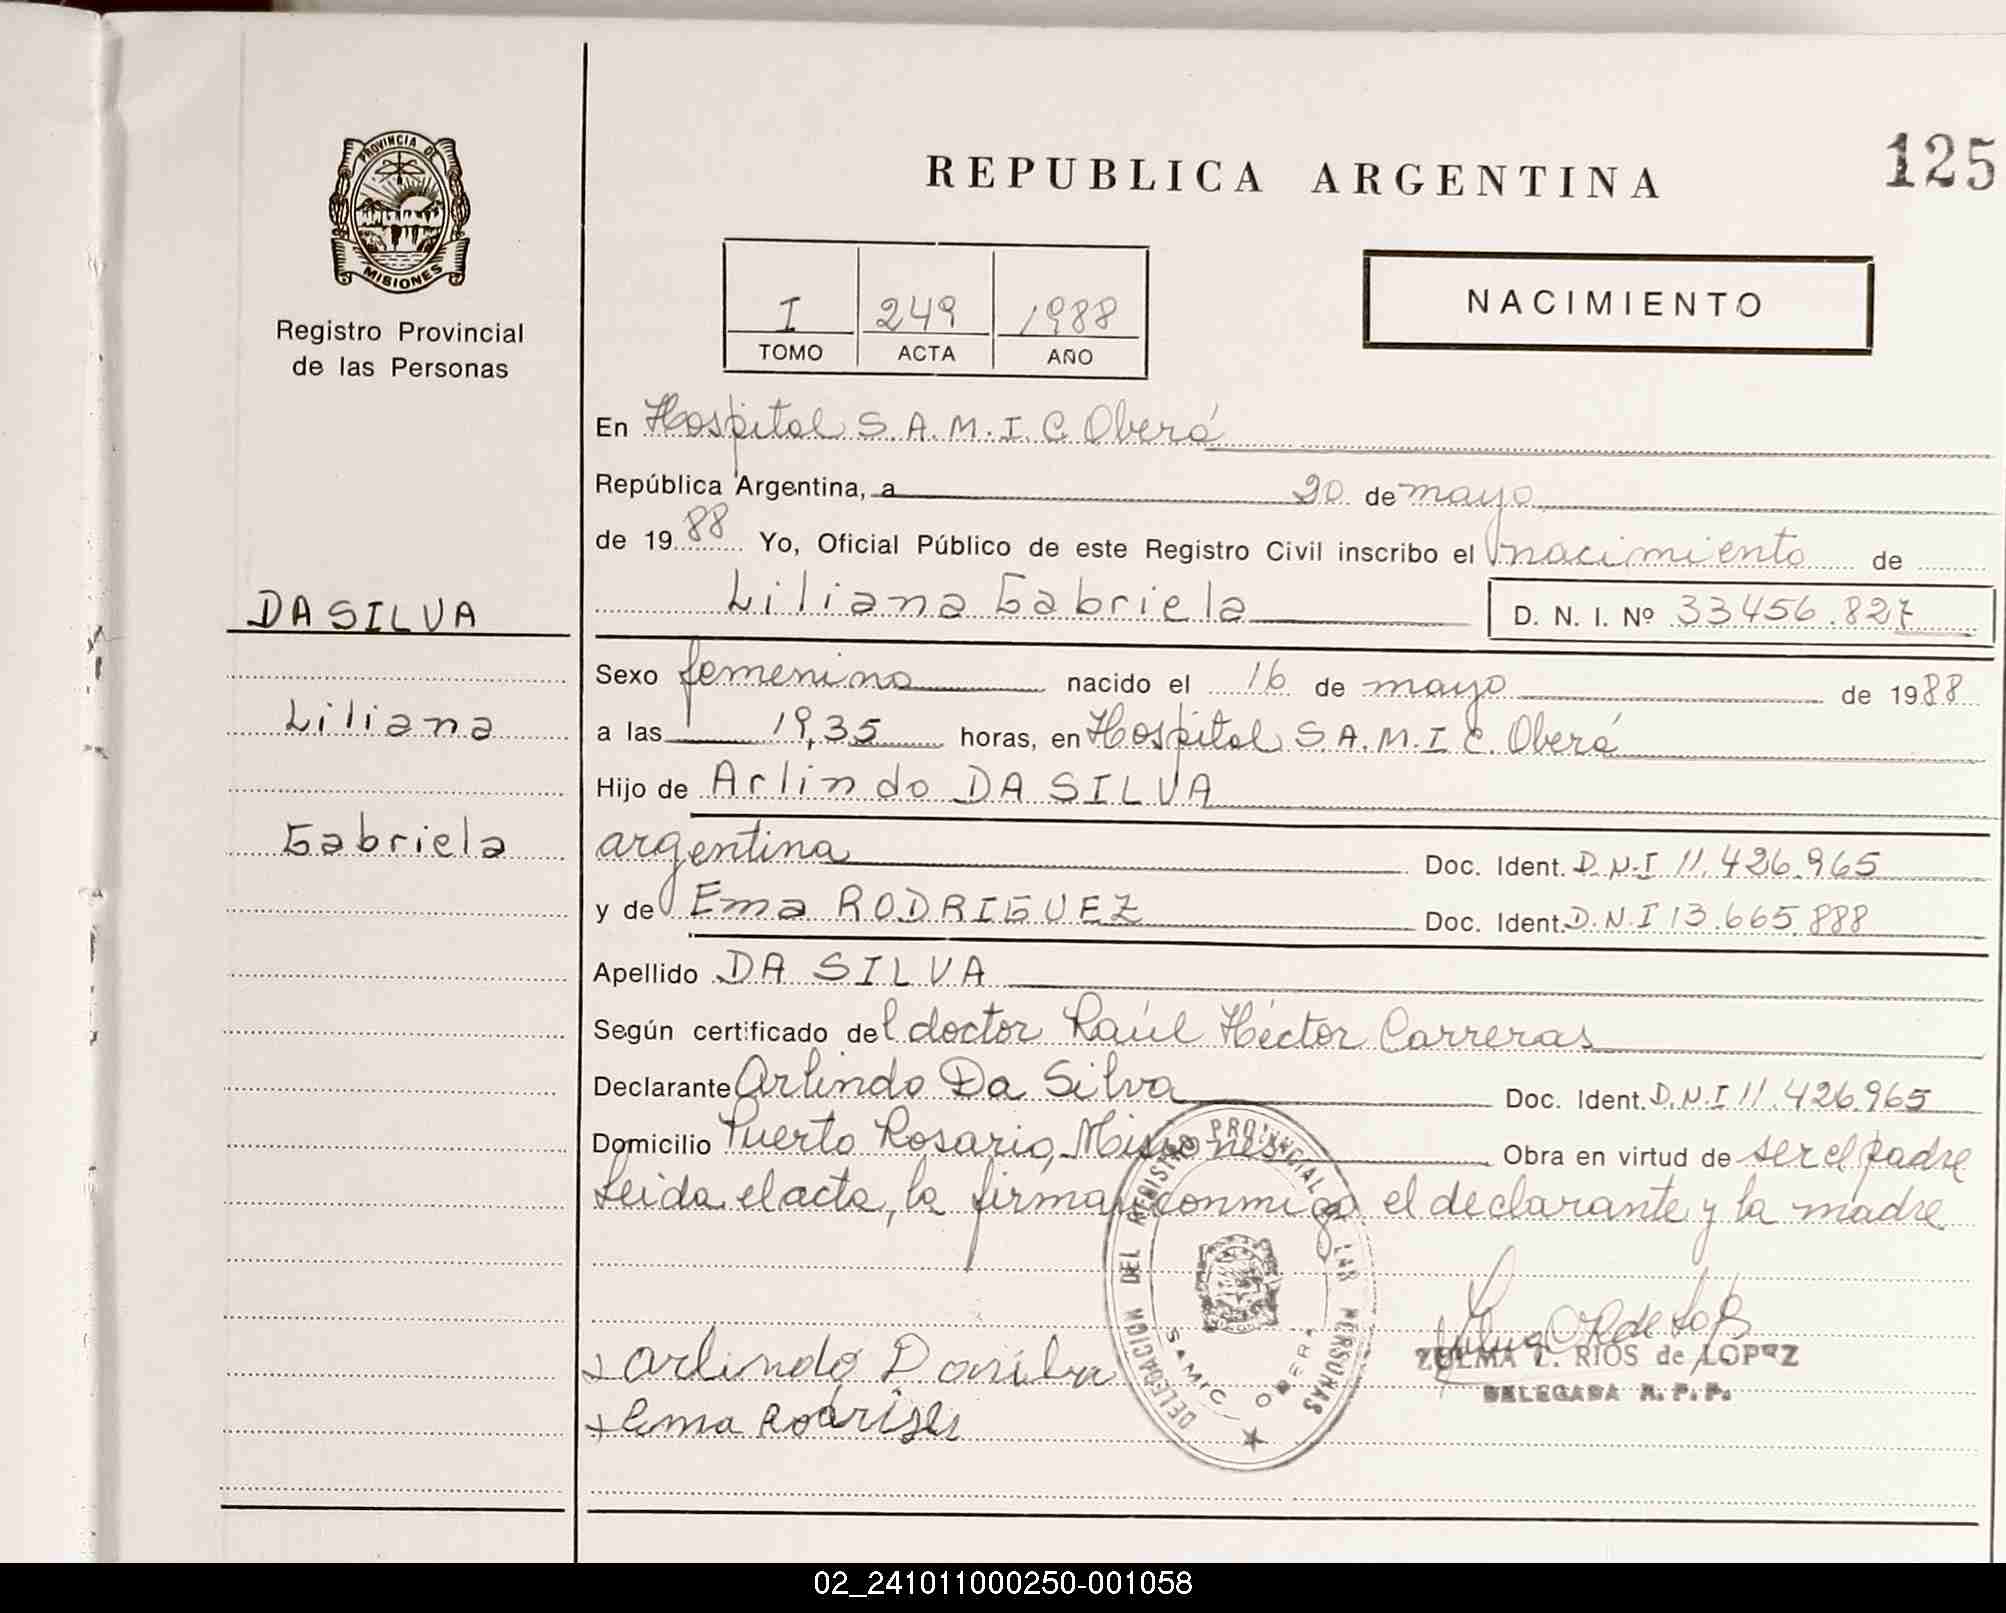 PROVINCIA DE
MISIONES
Registro Provincial
de las Personas
DA SILVA
Liliana
Gabriela
125
REPUBLICA ARGENTINA
I 249 1988
TOMO ACTA AÑO
NACIMIENTO
En Hospital S.A.M.I.C. Oberá
República Argentina, a 20 de mayo
de 1988 Yo, Oficial Público de este Registro Civil inscribo el nacimiento de
Liliana Gabriela D. N. I. Nº 33456.827
Sexo femenino nacido el 16 de mayo de 1988
a las 19,35 horas, en Hospital S.A.M.I.C. Oberá
Hijo de Arlindo DA SILVA
argentina Doc. Ident. D.N.I 11.426.965
y de Ema RODRIGUEZ Doc. Ident. D.N.I 13.665.888
Apellido DA SILVA
Según certificado del doctor Raúl Héctor Carreras
Declarante Arlindo Da Silva Doc. Ident. D.N.I 11.426.965
Domicilio Puerto Rosario, Misiones Obra en virtud de ser el padre
Leida el acta, la firman conmigo el declarante y la madre
DELEGACION DEL REGISTRO PROVINCIAL LAS PERSONAS
SAMIC OBERA
ZULMA C. RIOS de LOPEZ
DELEGADA R. P. P.
Arlindo Dasilva
Ema Rodriguez
02_241011000250-001058